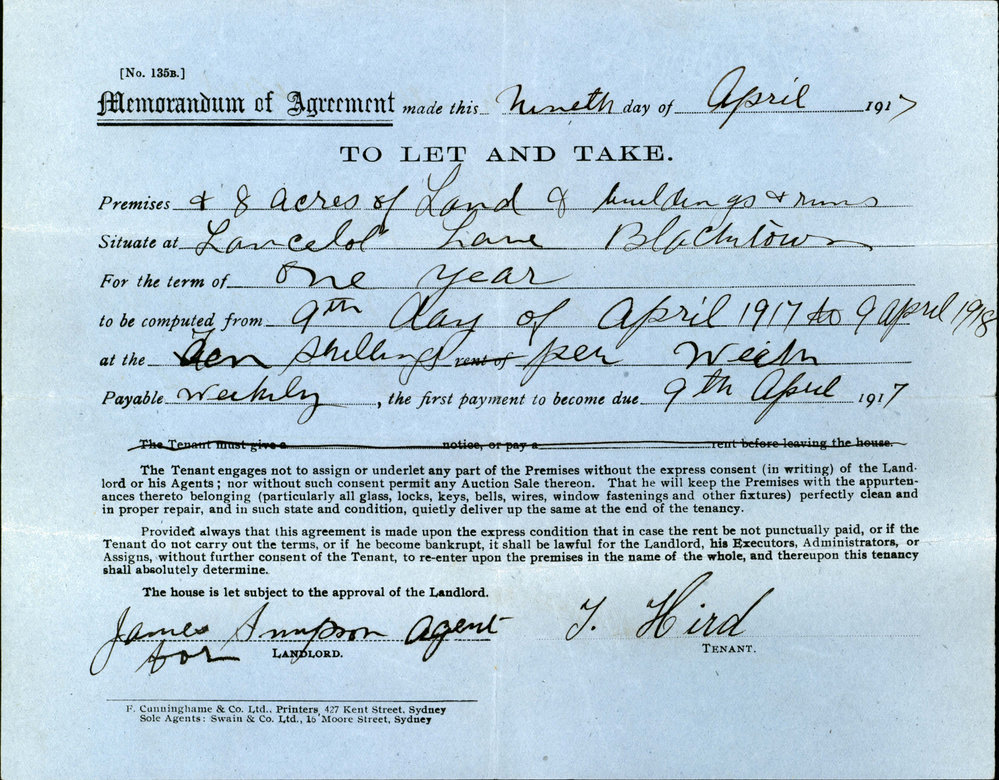 [No. 135B.]
Memorandum of Agreement made this Nineth day of April 1917
TO LET AND TAKE.
Premises & 8 acres of Land & buildings & runs
Situate at Lancelot Lane Blacktown
For the term of one year
to be computed from 9th day of April 1917 to 9 april 1918
at the Ten shillings rent of per Week
Payable Weekly, the first payment to become due 9th April 1917
The Tenant must give a notice, or pay a rent before leaving the house.
The Tenant engages not to assign or underlet any part of the Premises without the express consent (in writing) of the Land-
lord or his Agents; nor without such consent permit any Auction Sale thereon. That he will keep the Premises with the appurten-
ances thereto belonging (particularly all glass, locks, keys, bells, wires, window fastenings and other fixtures) perfectly clean and
in proper repair, and in such state and condition, quietly deliver up the same at the end of the tenancy.
Provided always that this agreement is made upon the express condition that in case the rent be not punctually paid, or if the
Tenant do not carry out the terms, or if he become bankrupt, it shall be lawful for the Landlord, his Executors, Administrators, or
Assigns, without further consent of the Tenant, to re-enter upon the premises in the name of the whole, and thereupon this tenancy
shall absolutely determine.
The house is let subject to the approval of the Landlord.
James Simpson agent T. Hird
for LANDLORD. TENANT.
F. Cunninghame & Co. Ltd., Printers, 427 Kent Street, Sydney
Sole Agents: Swain & Co. Ltd., 16 Moore Street, Sydney